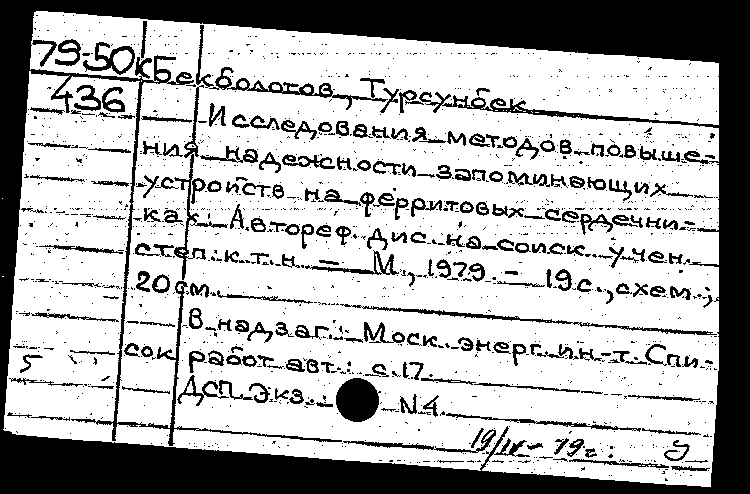 79-50к Бекбологов, Турсунбек
436
Исследования методов повыше-
ния надежности запоминающих
устройств на ферритовых сердечни-
ках: Автореф. дис. на соиск. учен.
степ. к.т.н. - М., 1979. - 19 с., схем.;
20 см.
В надзаг.: Моск. энерг. ин-т. Спи-
сок работ авт.: с. 17.
5
ДСП. Экз.: N4
19/IV- 79г.: